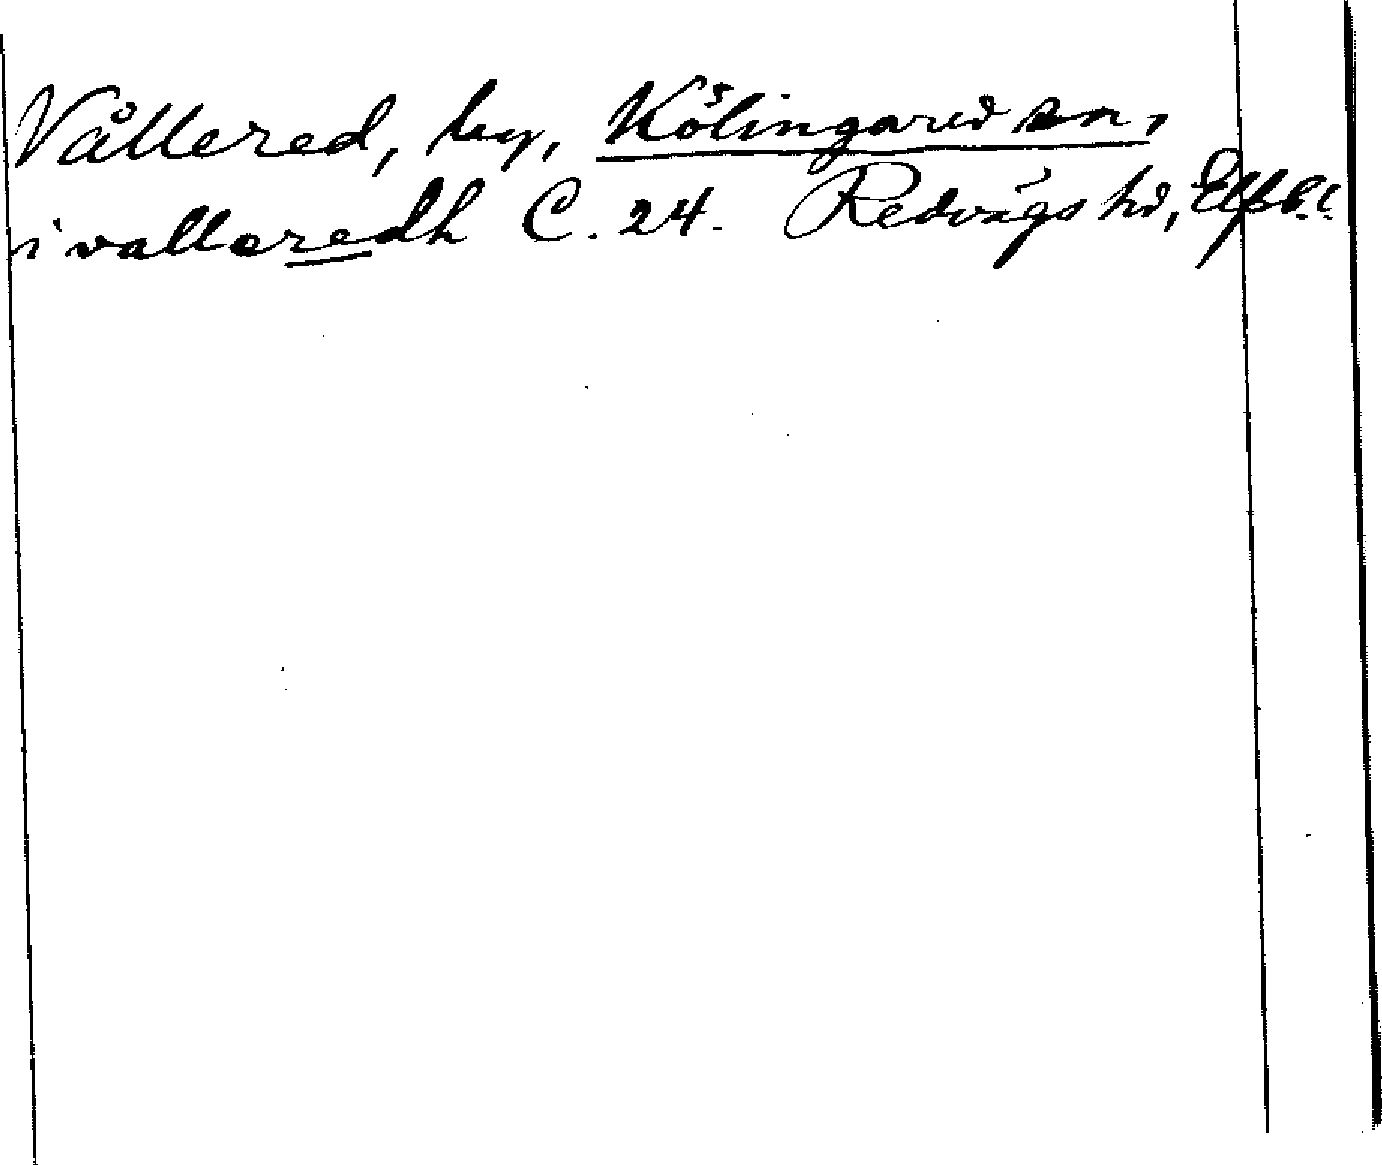 Vållered, by, Kölingared sn,
i valleredh C. 24. Redvägs hd, Elfsb.l.